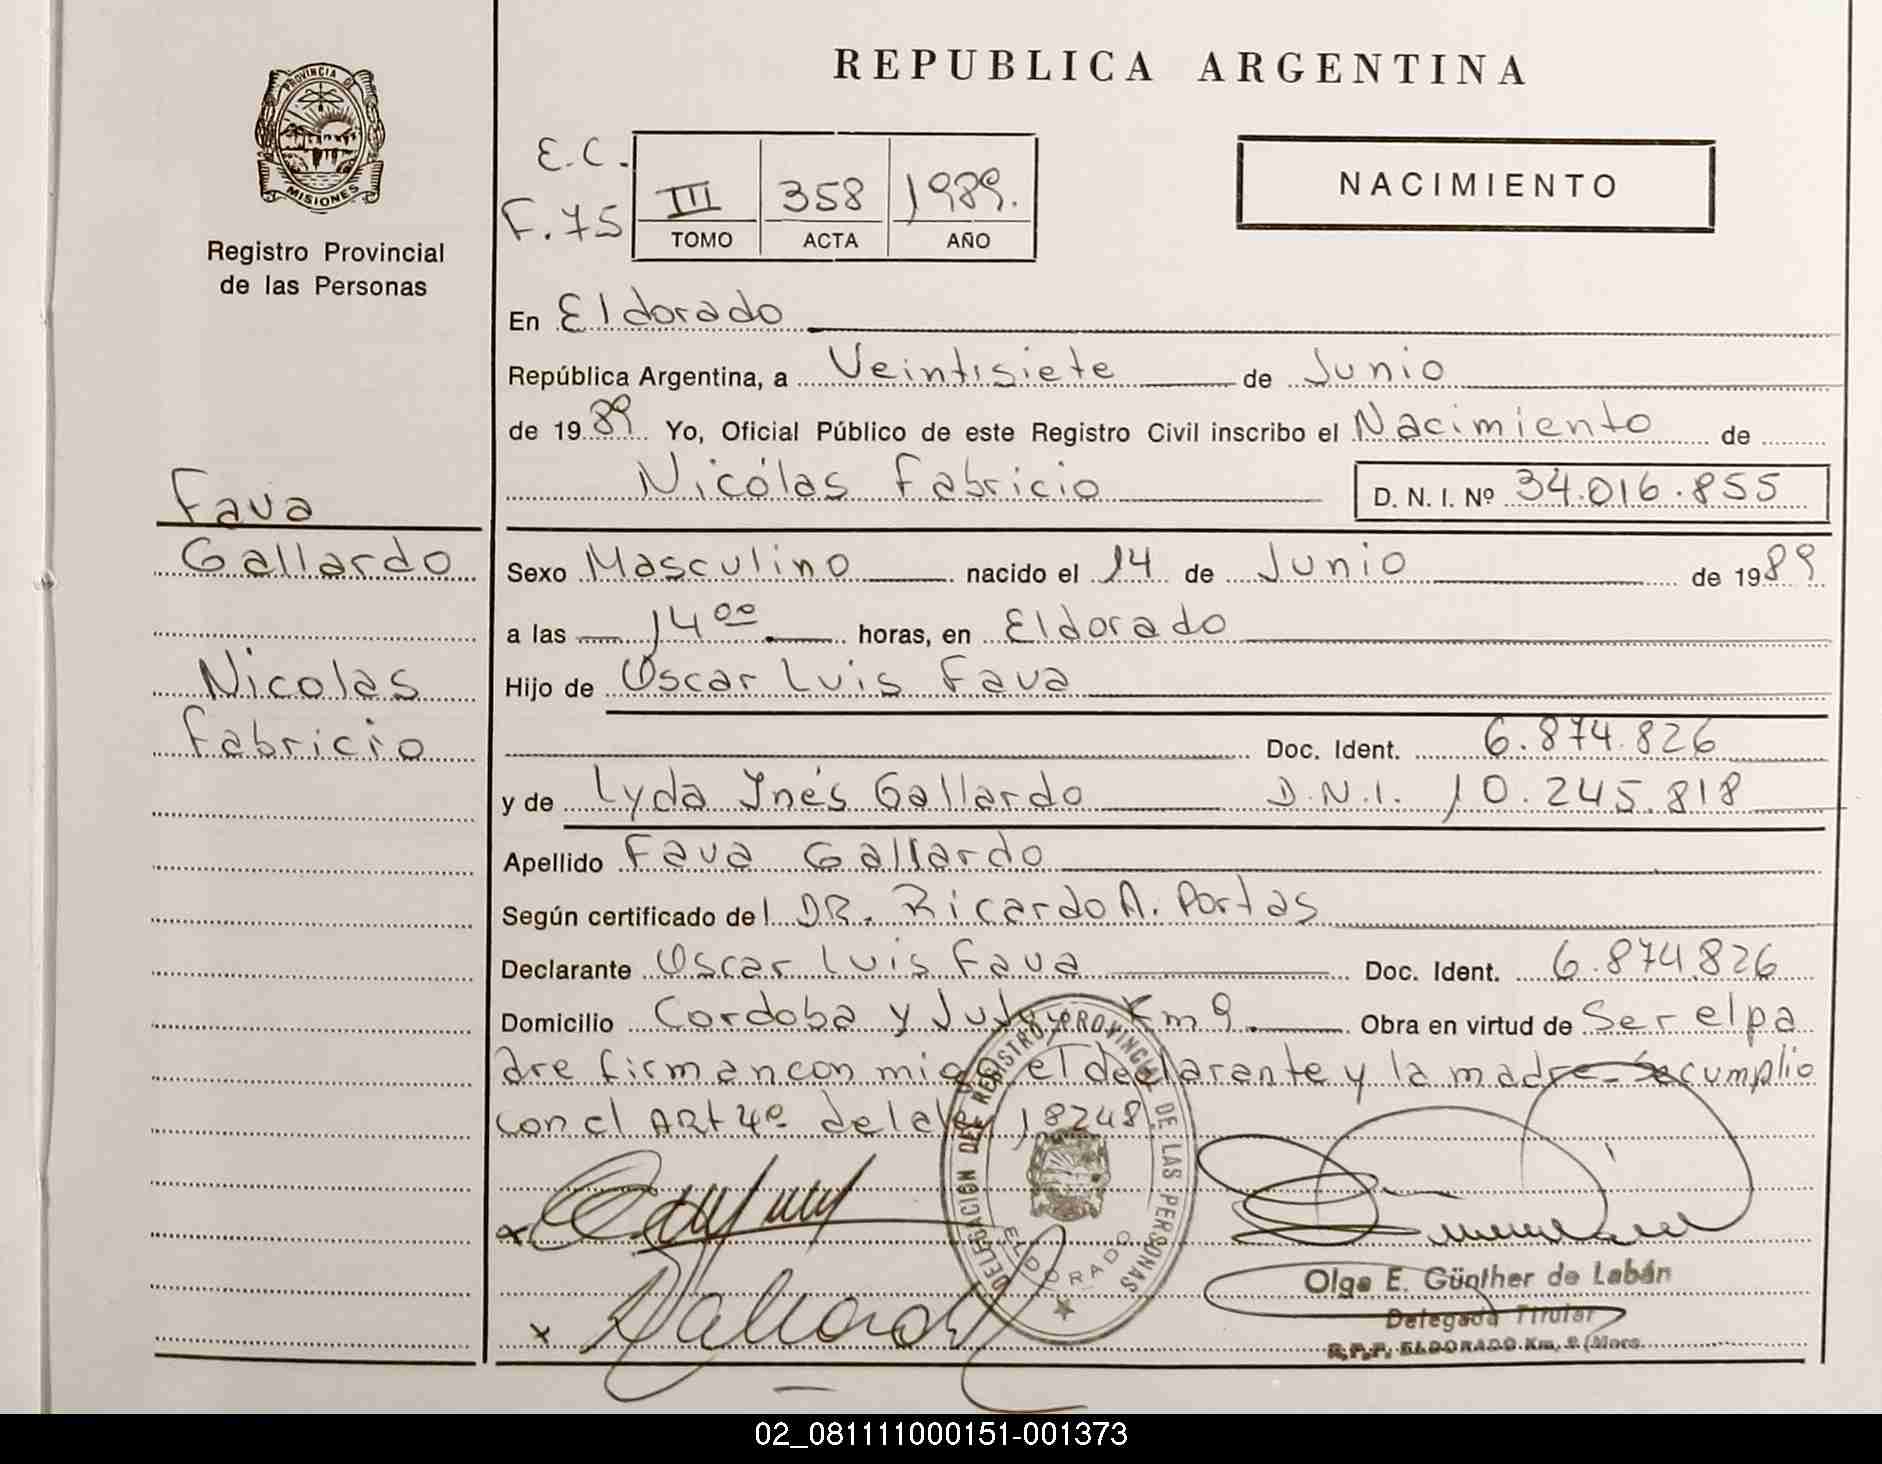 REPUBLICA ARGENTINA
PROVINCIA DE MISIONES
Registro Provincial
de las Personas
E.C.
F.75
III 358 1989.
TOMO ACTA AÑO
NACIMIENTO
En Eldorado
República Argentina, a Veintisiete de Junio
de 1989 Yo, Oficial Público de este Registro Civil inscribo el Nacimiento de
Nicólas Fabricio D. N. I. Nº 34.016.855
Fava
Gallardo
Nicolas
Fabricio
Sexo Masculino nacido el 14 de Junio de 1989
a las 14 00 horas, en Eldorado
Hijo de Oscar Luis Fava
Doc. Ident. 6.874.826
y de Lyda Ynés Gallardo D.N.I. 10.245.818
Apellido Fava Gallardo
Según certificado del DR. Ricardo A. Portas
Declarante Oscar Luis Fava Doc. Ident. 6.874.826
Domicilio Cordoba y Jujuy Km 9. Obra en virtud de Ser el pa
dre firman con migo el declarante y la madre - Se cumplio
con el ARt 4º de la ley 18248
DELEGACION DEL REGISTRO PROVINCIAL DE LAS PERSONAS
ELDORADO
Olga E. Günther de Labán
Delegada Titular
R.P.P. ELDORADO Km. 9 (Mnes.
02_081111000151-001373